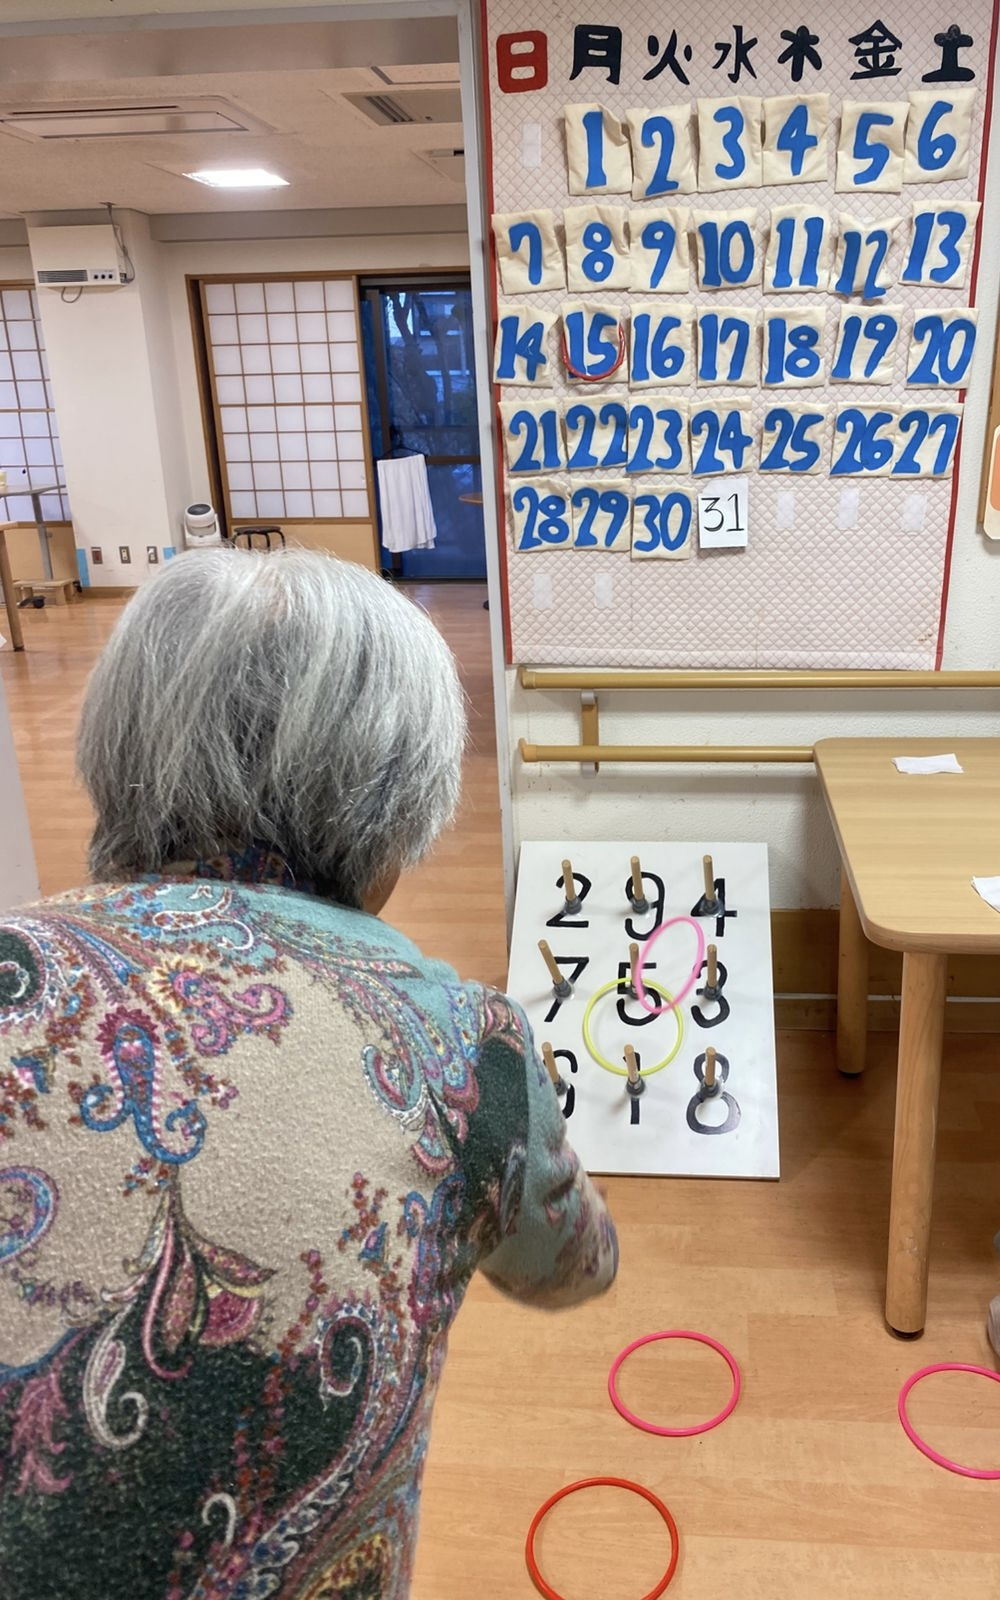 日 月 火 水 木 金 土
1 2 3 4 5 6
7 8 9 10 11 12 13
14 15 16 17 18 19 20
21 22 23 24 25 26 27
28 29 30 31
2 9 4
7 5 3
6 1 8